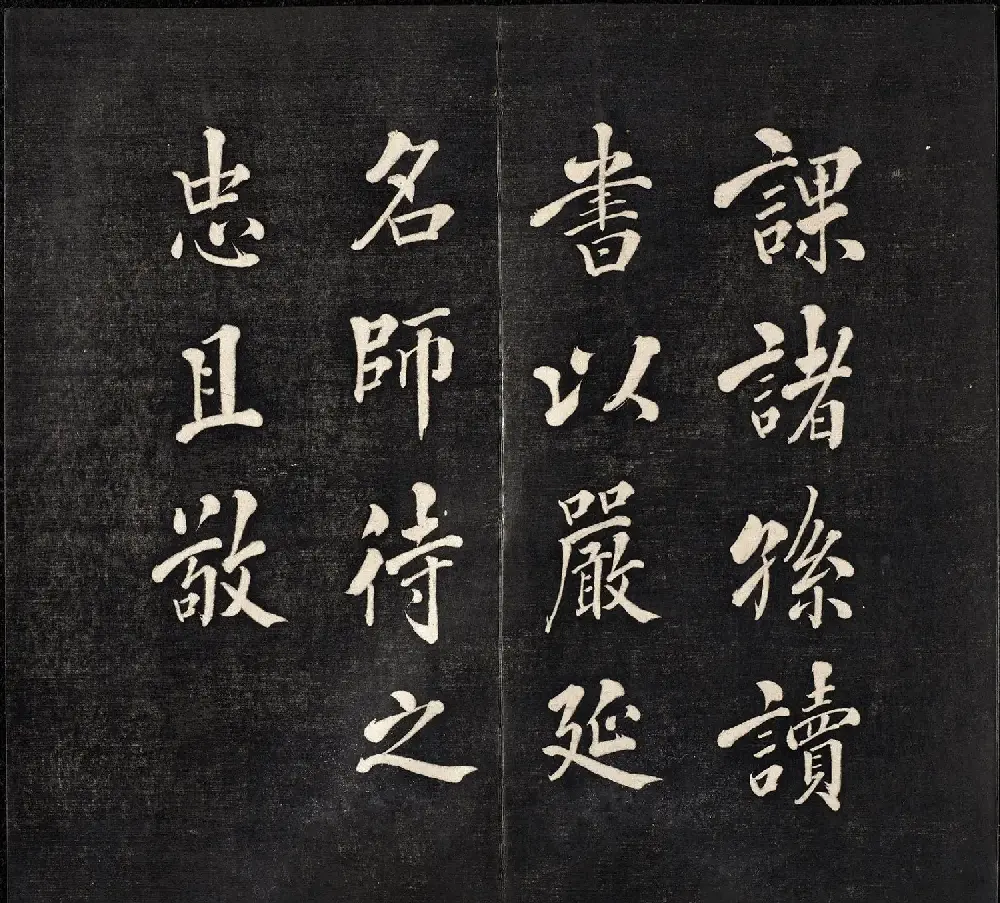 課諸孫讀
書以嚴延
名師待之
忠且敬